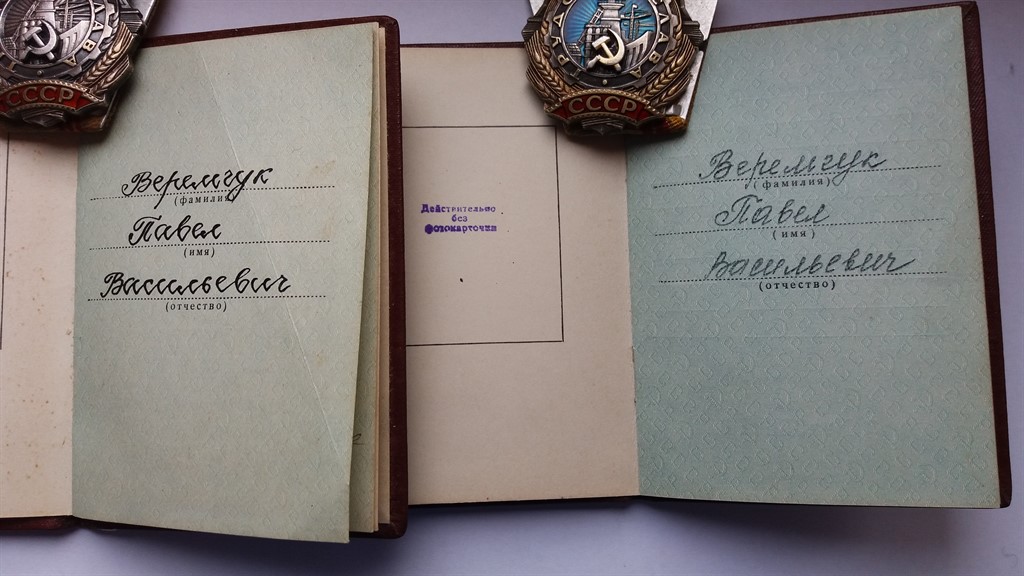 СССР
Веремчук
(фамилия)
Павел
(имя)
Васильевич
(отчество)
СССР
Действительно
без
фотокарточки
Веремчук
(фамилия)
Павел
(имя)
Васильевич
(отчество)